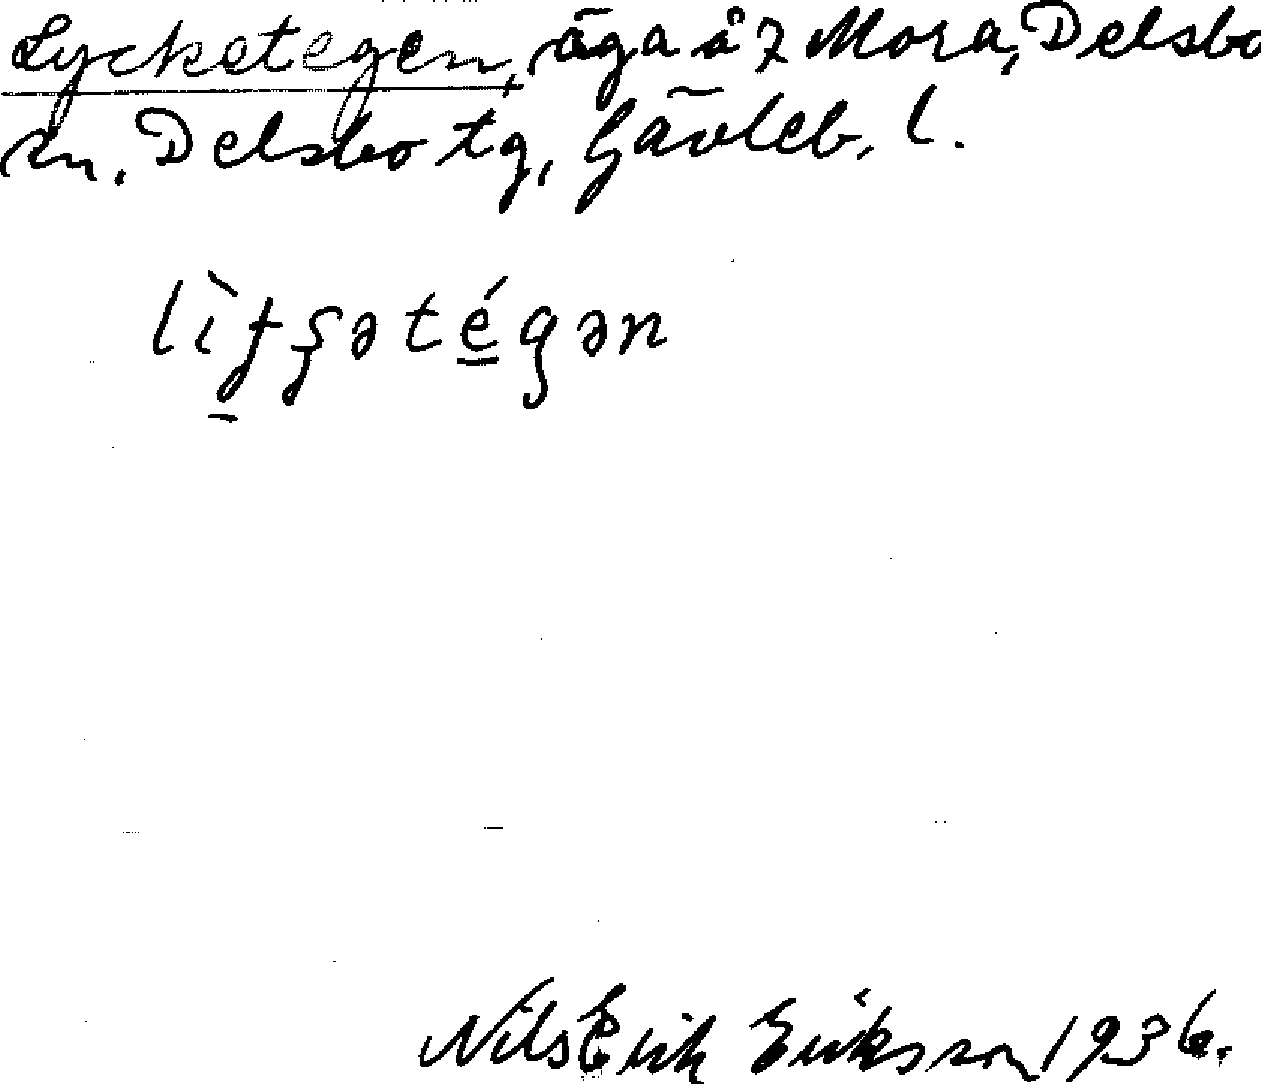 Lycketegen, äga å 7 Mora, Delsbo
sn. Delsbo tg, Gävleb. l.
Nils Erik Eriksson 1936.